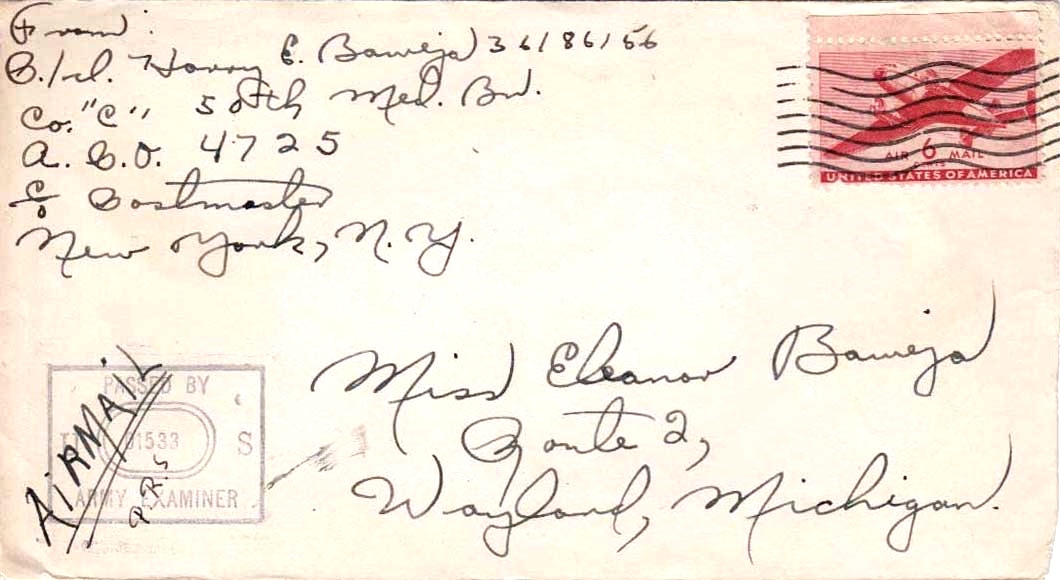 From:
P./rd. Harry E. Baweja 36186156
Co. "C", 50th Med. Bn.
A.P.O. 4725
c/o Postmaster
New York, N.Y.
AIR 6 MAIL
CENTS
UNITED STATES OF AMERICA
Miss Eleanor Baweja
Route 2,
Wayland, Michigan.
AIRMAIL
PASSED BY
U 01533 S
ARMY EXAMINER